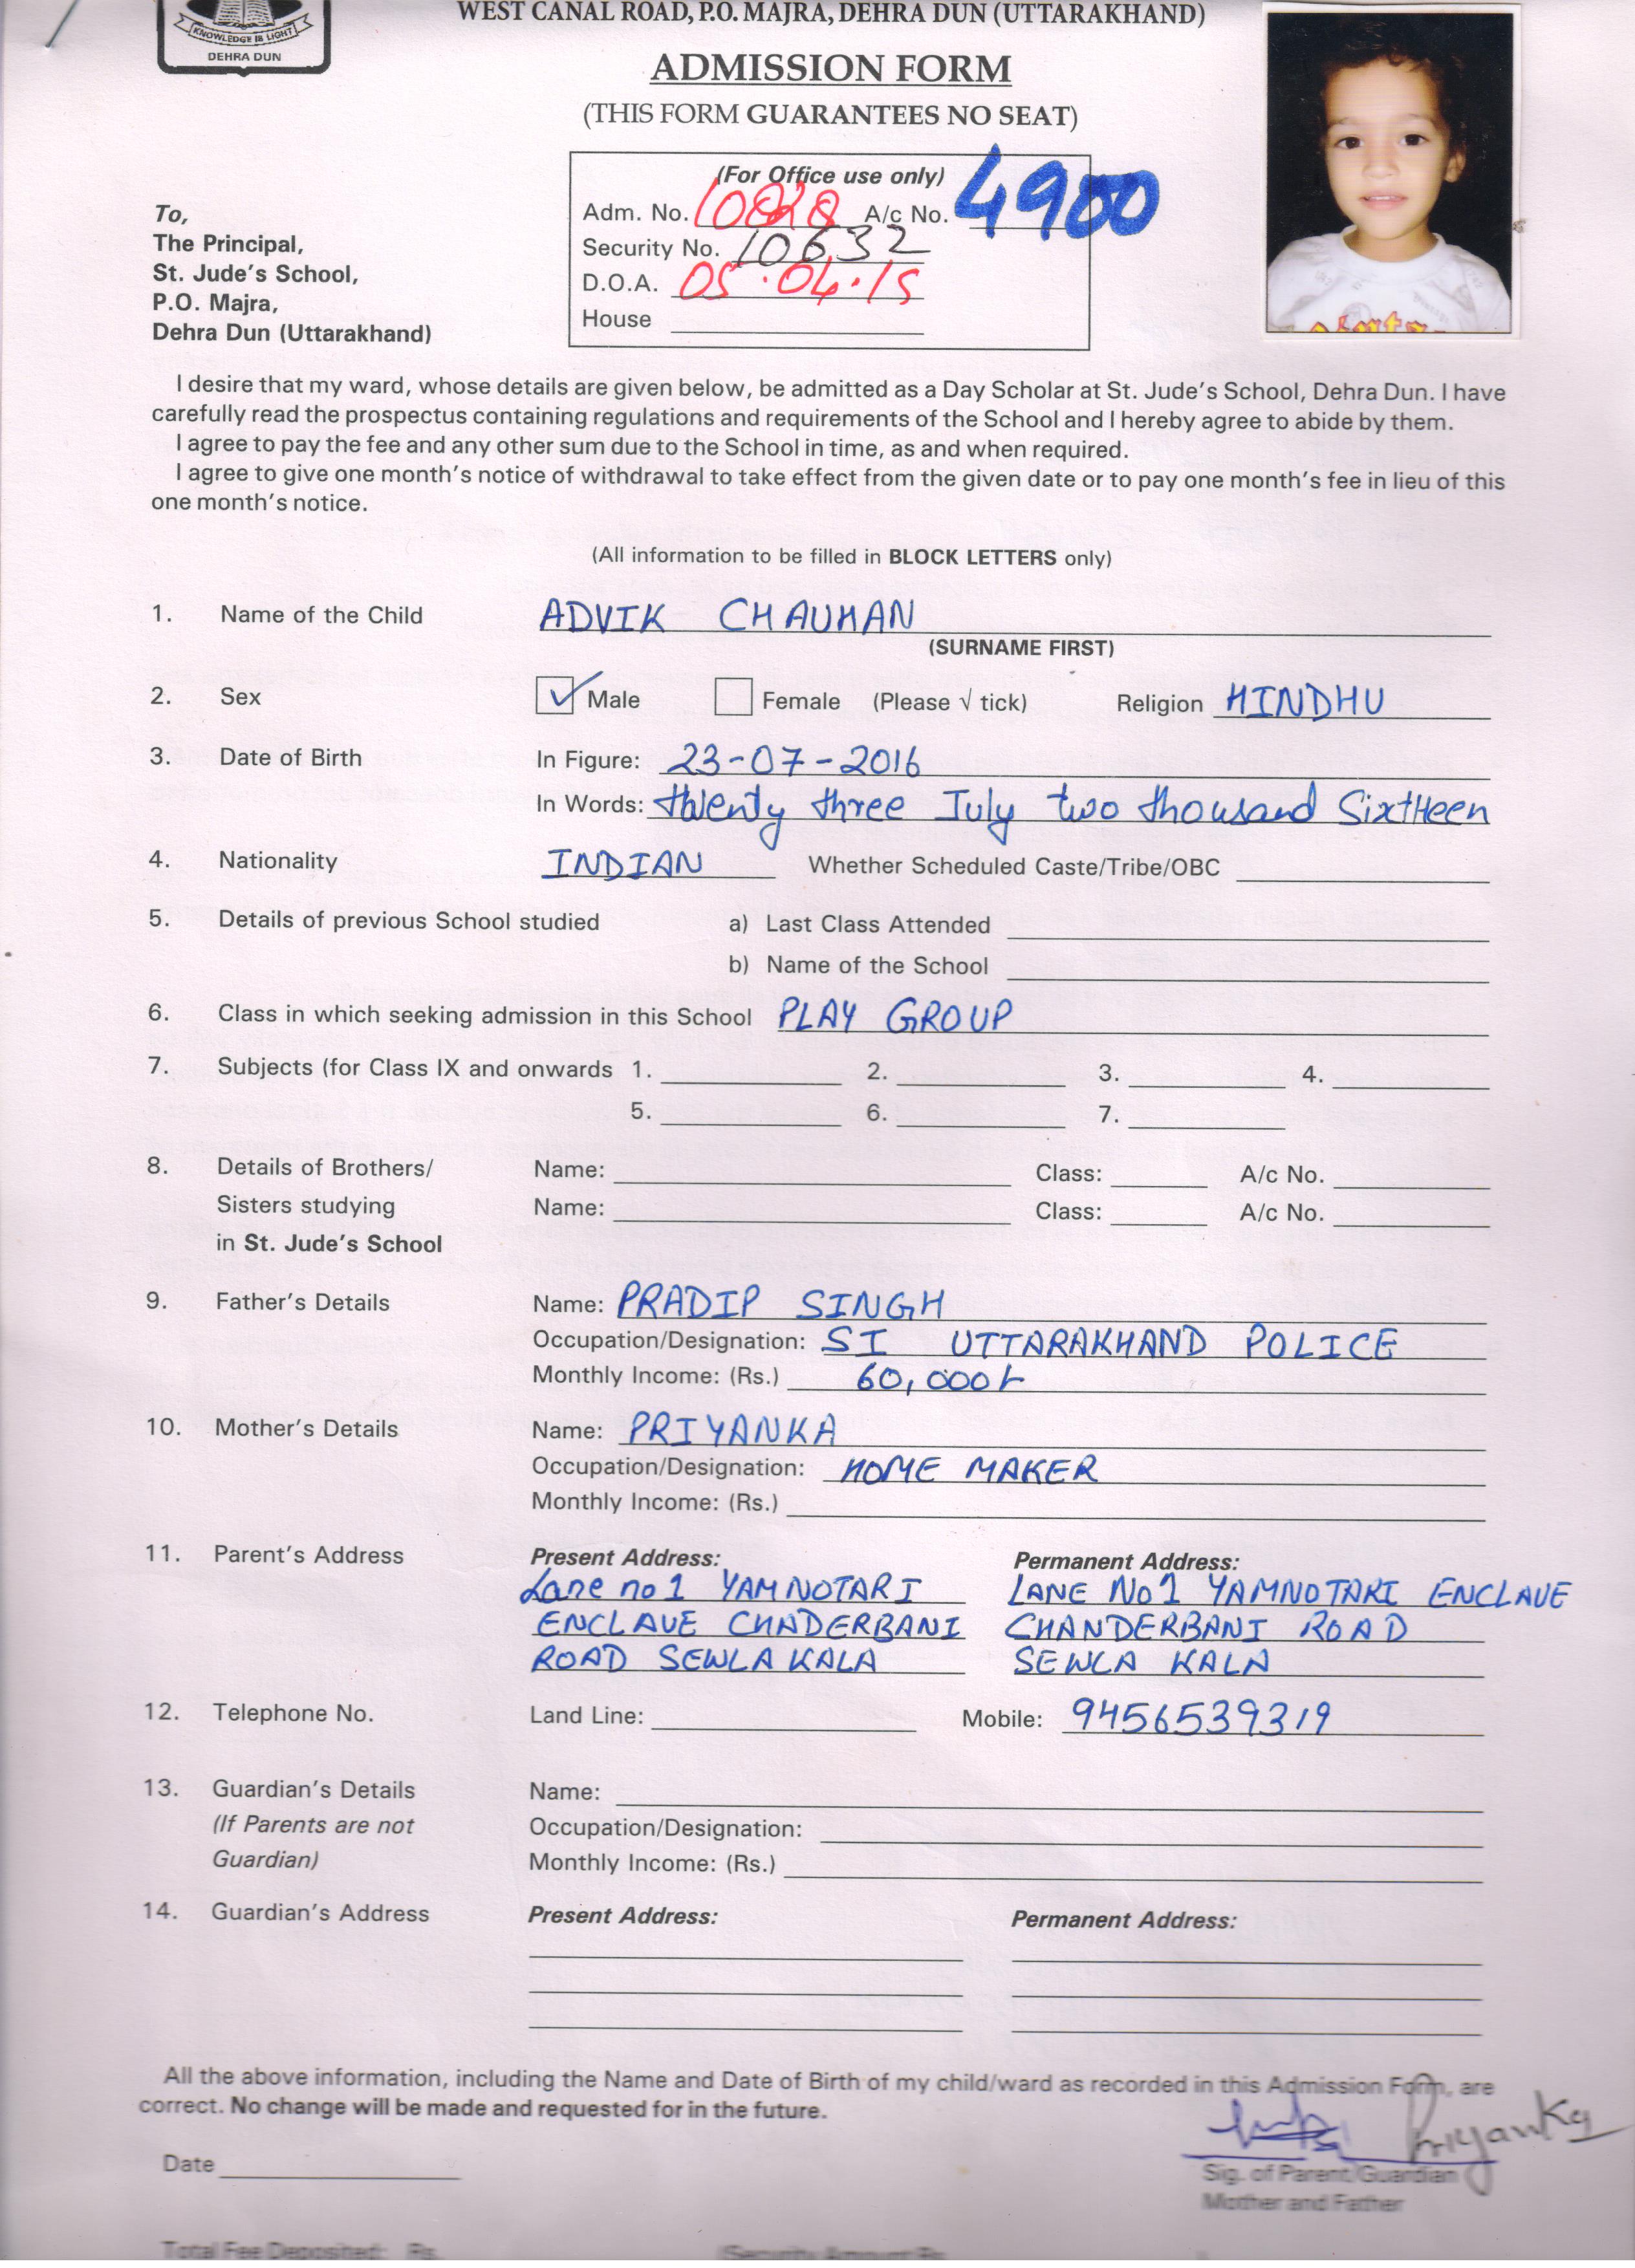 KNOWLEDGE IS LIGHT
DEHRA DUN
WEST CANAL ROAD, P.O. MAJRA, DEHRA DUN (UTTARAKHAND)
ADMISSION FORM
(THIS FORM GUARANTEES NO SEAT)
(For Office use only)
Adm. No. 10828 A/c No. 4900
Security No. 10632
D.O.A. 05.04.15
House
To,
The Principal,
St. Jude's School,
P.O. Majra,
Dehra Dun (Uttarakhand)
I desire that my ward, whose details are given below, be admitted as a Day Scholar at St. Jude's School, Dehra Dun. I have
carefully read the prospectus containing regulations and requirements of the School and I hereby agree to abide by them.
I agree to pay the fee and any other sum due to the School in time, as and when required.
I agree to give one month's notice of withdrawal to take effect from the given date or to pay one month's fee in lieu of this
one month's notice.
(All information to be filled in BLOCK LETTERS only)
1. Name of the Child ADVIK CHAUHAN
(SURNAME FIRST)
2. Sex ✓ Male Female (Please √ tick) Religion HINDHU
3. Date of Birth In Figure: 23-07-2016
In Words: twenty three July two thousand Sixtteen
4. Nationality INDIAN Whether Scheduled Caste/Tribe/OBC
5. Details of previous School studied a) Last Class Attended
b) Name of the School
6. Class in which seeking admission in this School PLAY GROUP
7. Subjects (for Class IX and onwards 1. 2. 3. 4.
5. 6. 7.
8. Details of Brothers/ Name: Class: A/c No.
Sisters studying Name: Class: A/c No.
in St. Jude's School
9. Father's Details Name: PRADIP SINGH
Occupation/Designation: SI UTTARAKHAND POLICE
Monthly Income: (Rs.) 60,000/-
10. Mother's Details Name: PRIYANKA
Occupation/Designation: HOME MAKER
Monthly Income: (Rs.)
11. Parent's Address Present Address: Permanent Address:
Lane no 1 YAMNOTARI LANE NO 1 YAMNOTARI ENCLAVE
ENCLAVE CHADERBANI CHANDERBANI ROAD
ROAD SEWLA KALA SEWLA KALA
12. Telephone No. Land Line: Mobile: 9456539319
13. Guardian's Details Name:
(If Parents are not Occupation/Designation:
Guardian) Monthly Income: (Rs.)
14. Guardian's Address Present Address: Permanent Address:
All the above information, including the Name and Date of Birth of my child/ward as recorded in this Admission Form, are
correct. No change will be made and requested for in the future.
Priyanka
Date
Sig. of Parent/Guardian
Mother and Father
Total Fee Deposited: Rs. (Security Amount Rs.